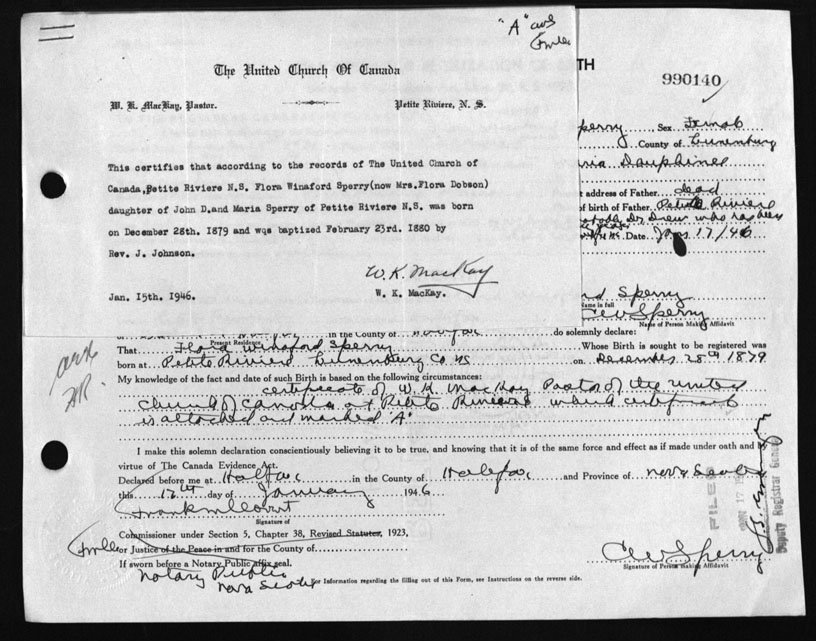 "A"
The United Church Of Canada
W. K. MacKay, Pastor.
Petite Riviere, N. S.
This certifies that according to the records of The United Church of
Canada,Petite Riviere N.S. Flora Winaford Sperry(now Mrs.Flora Dobson)
daughter of John D.and Maria Sperry of Petite Riviere N.S. was born
on December 28th. 1879 and wqs baptized February 23rd. 1880 by
Rev. J. Johnson.
W. K. MacKay
Jan. 15th. 1946.
W. K. MacKay.
TH
990140
perry, Sex Female
County of Lunenburg
ria Dauphinee
address of Father dead
of birth of Father Petite Riviere
Dr Drew who has
Date Jan 17/46
rd Sperry
ame in full
C W Sperry
Name of Person Making Affidavit
in the County of Halifax do solemnly declare:
Present Residence
That Flora Winaford Sperry Whose Birth is sought to be registered was
born at Petite Riviere Lunenburg Co NS on December 28th 1879
My knowledge of the fact and date of such Birth is based on the following circumstances:
certificate of W. K. MacKay Pastor of the United
Church of Canada at Petite Riviere which certificate
is attached and marked "A"
I make this solemn declaration conscientiously believing it to be true, and knowing that it is of the same force and effect as if made under oath and by
virtue of The Canada Evidence Act.
Declared before me at Halifax in the County of Halifax and Province of Nova Scotia
this 17th day of January 1946
Signature of
Commissioner under Section 5, Chapter 38, Revised Statutes, 1923,
or Justice of the Peace in and for the County of
If sworn before a Notary Public affix seal.
Notary Public
Nova Scotia
C W Sperry
Signature of Person making Affidavit
For Information regarding the filling out of this Form, see Instructions on the reverse side.
FILED
JAN 17
Deputy Registrar General